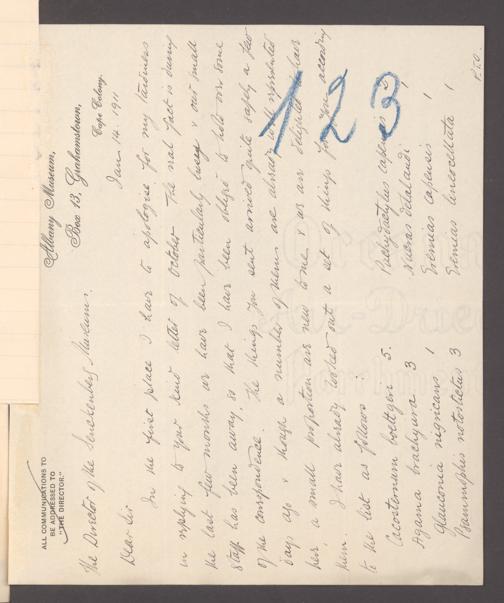 ALL COMMUNICATIONS TO
BE ADDRESSED TO
"THE DIRECTOR."
Albany Museum,
Box 13, Grahamstown,
Cape Colony.
Jan 14. 1911
The Director of the Senckenberg Museum.
Dear Sir
In the first place I have to apologise for my tardiness
in replying to your kind letter of October. The real fact is during
the last few months we have been particularly busy & our small
staff has been away, so that I have been obliged to hold over some
of the correspondence. The things you sent arrived quite safely a few
days ago & though a number of them are already well represented
here a small proportion are new to me & we are delighted to have
them. I have already looked out a set of things for you according
to the list as follows:
123
Cacosternum boettgeri 5.
Agama brachyura 3
Glauconia nigricans 1
Psammophis notostictus 3
Pachydactylus capensis 2
Nucras delalandi 1
Eremias capensis 1
Eremias lineocellata 1
P.T.O.